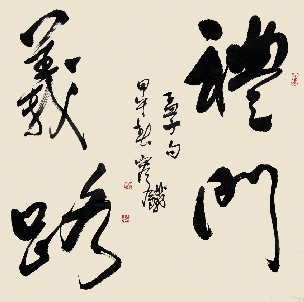 禮門
義路
孟子句
甲午